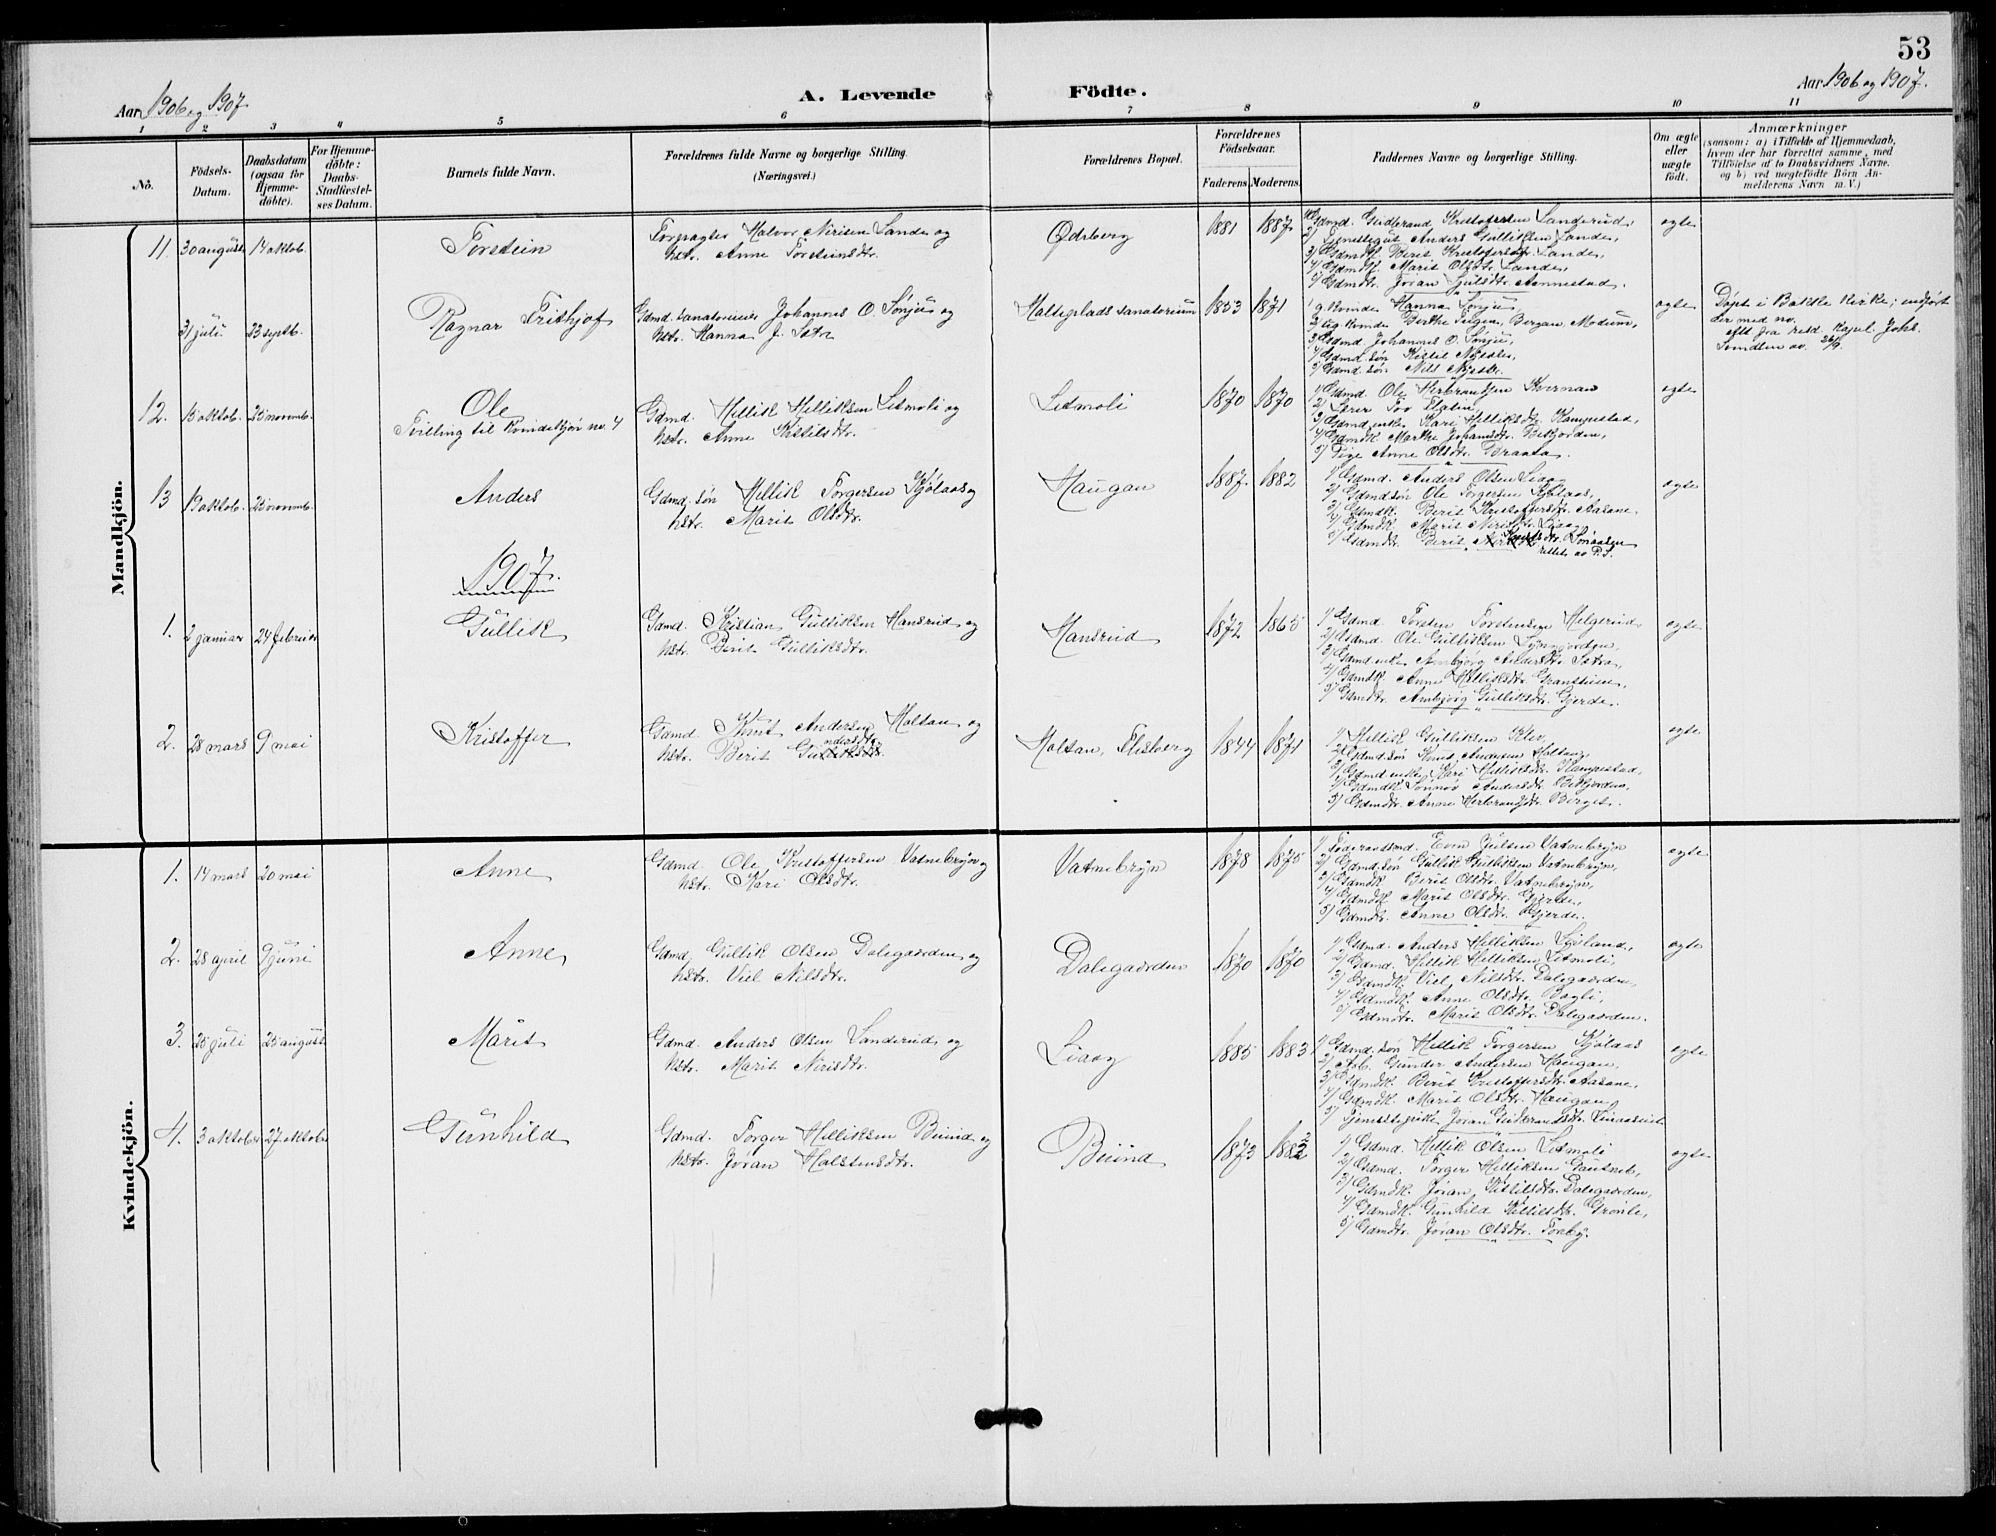 53
Aar 1906 og 1907.
A. Levende Födte.
Aar 1906 og 1907.
1 2 3 4 5 6 7 8 9 10 11
No.
Födsels-
Datum.
Daabsdatum
(ogsaa for
Hjemme-
döbte).
For Hjemme-
döbte:
Daabs-
Stadfæstel-
ses Datum.
Barnets fulde Navn.
Forældrenes fulde Navne og borgerlige Stilling.
(Næringsvei.)
Forældrenes Bopæl.
Forældrenes
Födselsaar.
Faderens Moderens
Faddernes Navne og borgerlige Stilling.
Om ægte
eller
uægte
födt.
Anmærkninger
(saasom: a) i Tilfælde af Hjemmedaab,
hvem der har forrettet samme, med
Tilföielse af to Daabsvidners Navne.
og b) ved uægtefödte Börn An-
melderens Navn m. V.)
Mandkjön.
11. 30 august 14 oktob. Torstein
Forpagter Halvor Nirisen Lande og
hstr. Anne Torsteinsdtr.
Ødsberg 1881 1887
1) Gdmd. Guldbrand Kristoffersen Landerud,
2) Tjenestegut Anders Gulliksen Lande,
3) Gdmdk. Berit Kristoffersdtr. Lande,
4) Gdmdk. Marit Olsdtr. Lande,
5) Gdmdtr. Jøran Juulsdtr. Aennestad.
egte
31 juli 23 septb. Ragnar Frithjof
Gdmd. sanatorieeier Johannes O. Sønju og
hstr. Hanna J. Sætra
Holteplads sanatorium 1853 1871
1) g. kvinde Hanna Sønju,
2) ug. kvinde Berthe Bergan, Modum,
3) Gdmd. Johannes O. Sønju,
4) Gdmd.søn Kittil
5) Gdmd. søn Nils
egte
Døpt i Bakke kirke; indført
der med no.
efld. fra resd. kapel. Johs.
av 26/9.
12. 15 oktob. 25 novemb. Ole
Tvilling til kvindekjøn no. 4
Gdmd. Hellik Helliksen Letmoli og
hstr. Anne Kittilsdtr.
Letmoli 1870 1870
1) Gdmd. Ole Herbrandsen Kvernan
2) Lærer Tov Flaten,
3) Gdmd.enke Kari Helliksdtr. Kampestad,
4) Gdmdk Marthe Johansdtr. Bekjorden,
5) Pige Anne Olsdtr. Braata.
egte
13 19 oktob. 25 novemb. Anders
Gdmd. søn Hellik Torgersen Kjølaas og
hstr. Marit Olsdtr.
Haugan 1887. 1882
1) Gdmd. Anders Olsen Liaag
2) Gdmdsøn Ole Torgersen Kjølaas,
3) Gdmdk. Berit Kristoffersdtr. Aasane.
4) Gdmdk. Marit Nirisdtr. Liaag,
5) Gdmdtr. Berit
rettet av P.S.
egte
1907.
1. 2 januar 24 februar Gullik
Gdmd. Kristian Gulliksen Hansrud og
hstr. Berit Gulliksdtr.
Hansrud 1872 1865
1) Gdmd. Torsten Torstensen Helgerud,
2) Gdmd. Ole Gulliksen
3) Gdmd.enke Anbjørg Andersdtr. Sætra,
4) Gdmdk. Anne Helliksdtr.
5) Gdmdtr. Anbjørg Gulliksdtr. Gjerde.
egte
2. 28 mars 9 mai Kristoffer
Gdmd. Knut Andersen Holtan og
hstr. Berit
Holtan, Flesberg 1844 1871
1) Hellik Gulliksen
2) Gdmd.søn Knut Andersen Holtan,
3) Gdmd.enke Kari Helliksdtr. Kampestad,
4) Gdmdk Sønnøv Andersdtr. Bekjorden,
5) Gdmdtr. Anne Herbrandsdtr. Berget.
egte
Kvindekjön.
1. 14 mars 20 mai Anne
Gdmd. Ole Kristoffersen Vatnebryn og
hstr. Kari Olsdtr.
Vatnebryn 1878 1875
1) Føderaadsmd. Even Juulsen Vatnebryn
2) Gdmd.søn Gullik Gulliksen Vatnebryn,
3) Gdmdk Berit Olsdtr. Vatnebryn,
4) Gdmdk Marit Olsdtr. Gjerde,
5) Gdmdtr. Anne Olsdtr. Gjerde.
egte
2. 28 april 9 juni Anne
Gdmd. Gullik Olsen Dalegaarden og
hstr. Viel Nilsdtr.
Dalegaarden 1870 1870
1) Gdmd. Anders Helliksen
2) Gdmd. Hellik Helliksen Letmoli,
3) Gdmdk. Viel Nilsdtr. Dalegaarden,
4) Gdmdk. Anne Olsdtr. Bagli,
5) Gdmdtr. Marit Olsdtr. Dalegaarden.
egte
3. 25 juli 25 august Mårit
Gdmd. Anders Olsen Landerud, og
hstr. Marit Nirisdtr.
Liaag 1885 1883
1) Gdmd. søn Hellik Torgersen Kjølaas
2) Arb. Gunder Andersen Haugan,
3) Gdmdk. Berit Kristoffersdtr. Aasane,
4) Gdmdk. Marit Olsdtr. Haugan,
5) Tjenestepike Jøran Guldbrandsdtr.
egte
4. 3 oktober 27 oktober Gunhild
Gdmd. Torger Helliksen Buind og
hstr. Jøran Halstensdtr.
Buind 1873 1882
1) Gdmd. Hellik Olsen Letmoli
2) Gdmd. Torger Helliksen
3) Gdmdk. Jøran Kittilsdtr. Dalegaarden,
4) Gdmdk. Gunhild Kittilsdtr. Grønli,
5) Gdmdtr. Jøran Olsdtr. Foreby.
egte